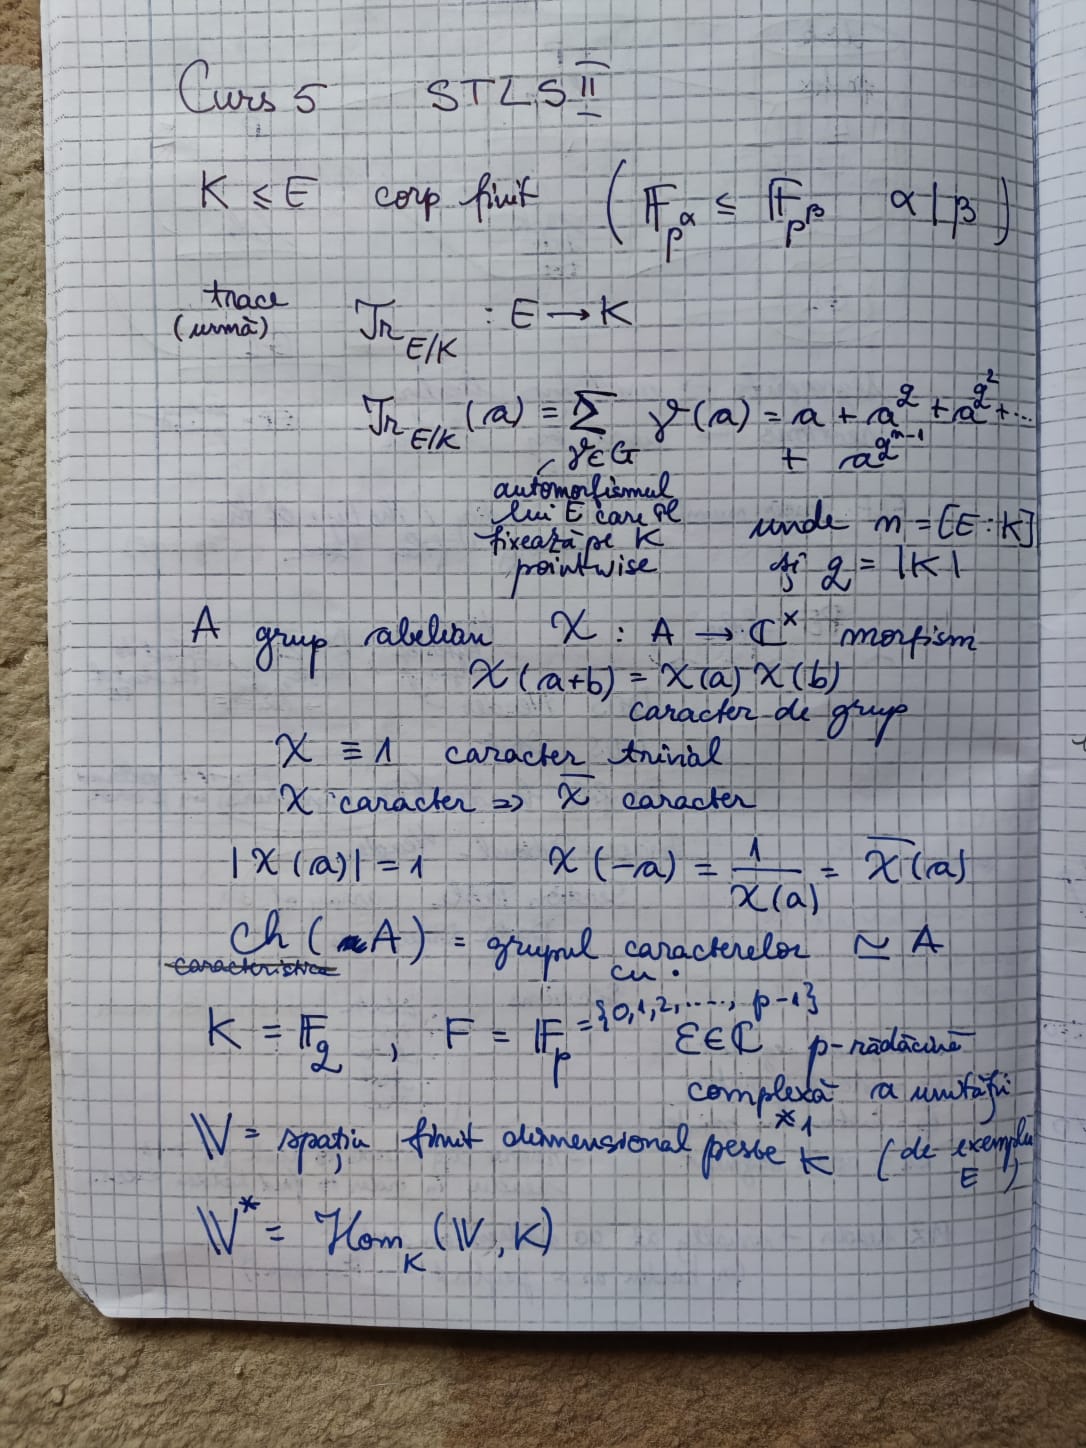 Curs 5 STLS II
K ≤ E corp finit (𝔽_{p^α} ≤ 𝔽_{p^β} α | β)
trace
(urmă) Tr_{E/K} : E → K
Tr_{E/K}(a) = Σ_{γ∈G} γ(a) = a + a^q + a^{q^2} + ...
+ a^{q^{n-1}}
automorfismul
lui E care îl
fixează pe K
pointwise
unde n = [E : K]
și q = |K|
A grup abelian χ : A → ℂ^× morfism
χ(a+b) = χ(a) χ(b)
caracter de grup
χ ≡ 1 caracter trivial
χ caracter ⇒ χ̄ caracter
|χ(a)| = 1 χ(-a) = 1/χ(a) = χ̄(a)
Ch(A) = grupul caracterelor ≃ A
caracteristica cu ·
K = 𝔽_q , F = 𝔽_p = {0,1,2,...., p-1}
ε∈ℂ p-rădăcină
complexă a unității
≠1
𝕍 = spațiu finit dimensional peste K (de exemplu
E)
𝕍* = Hom_K (𝕍, K)